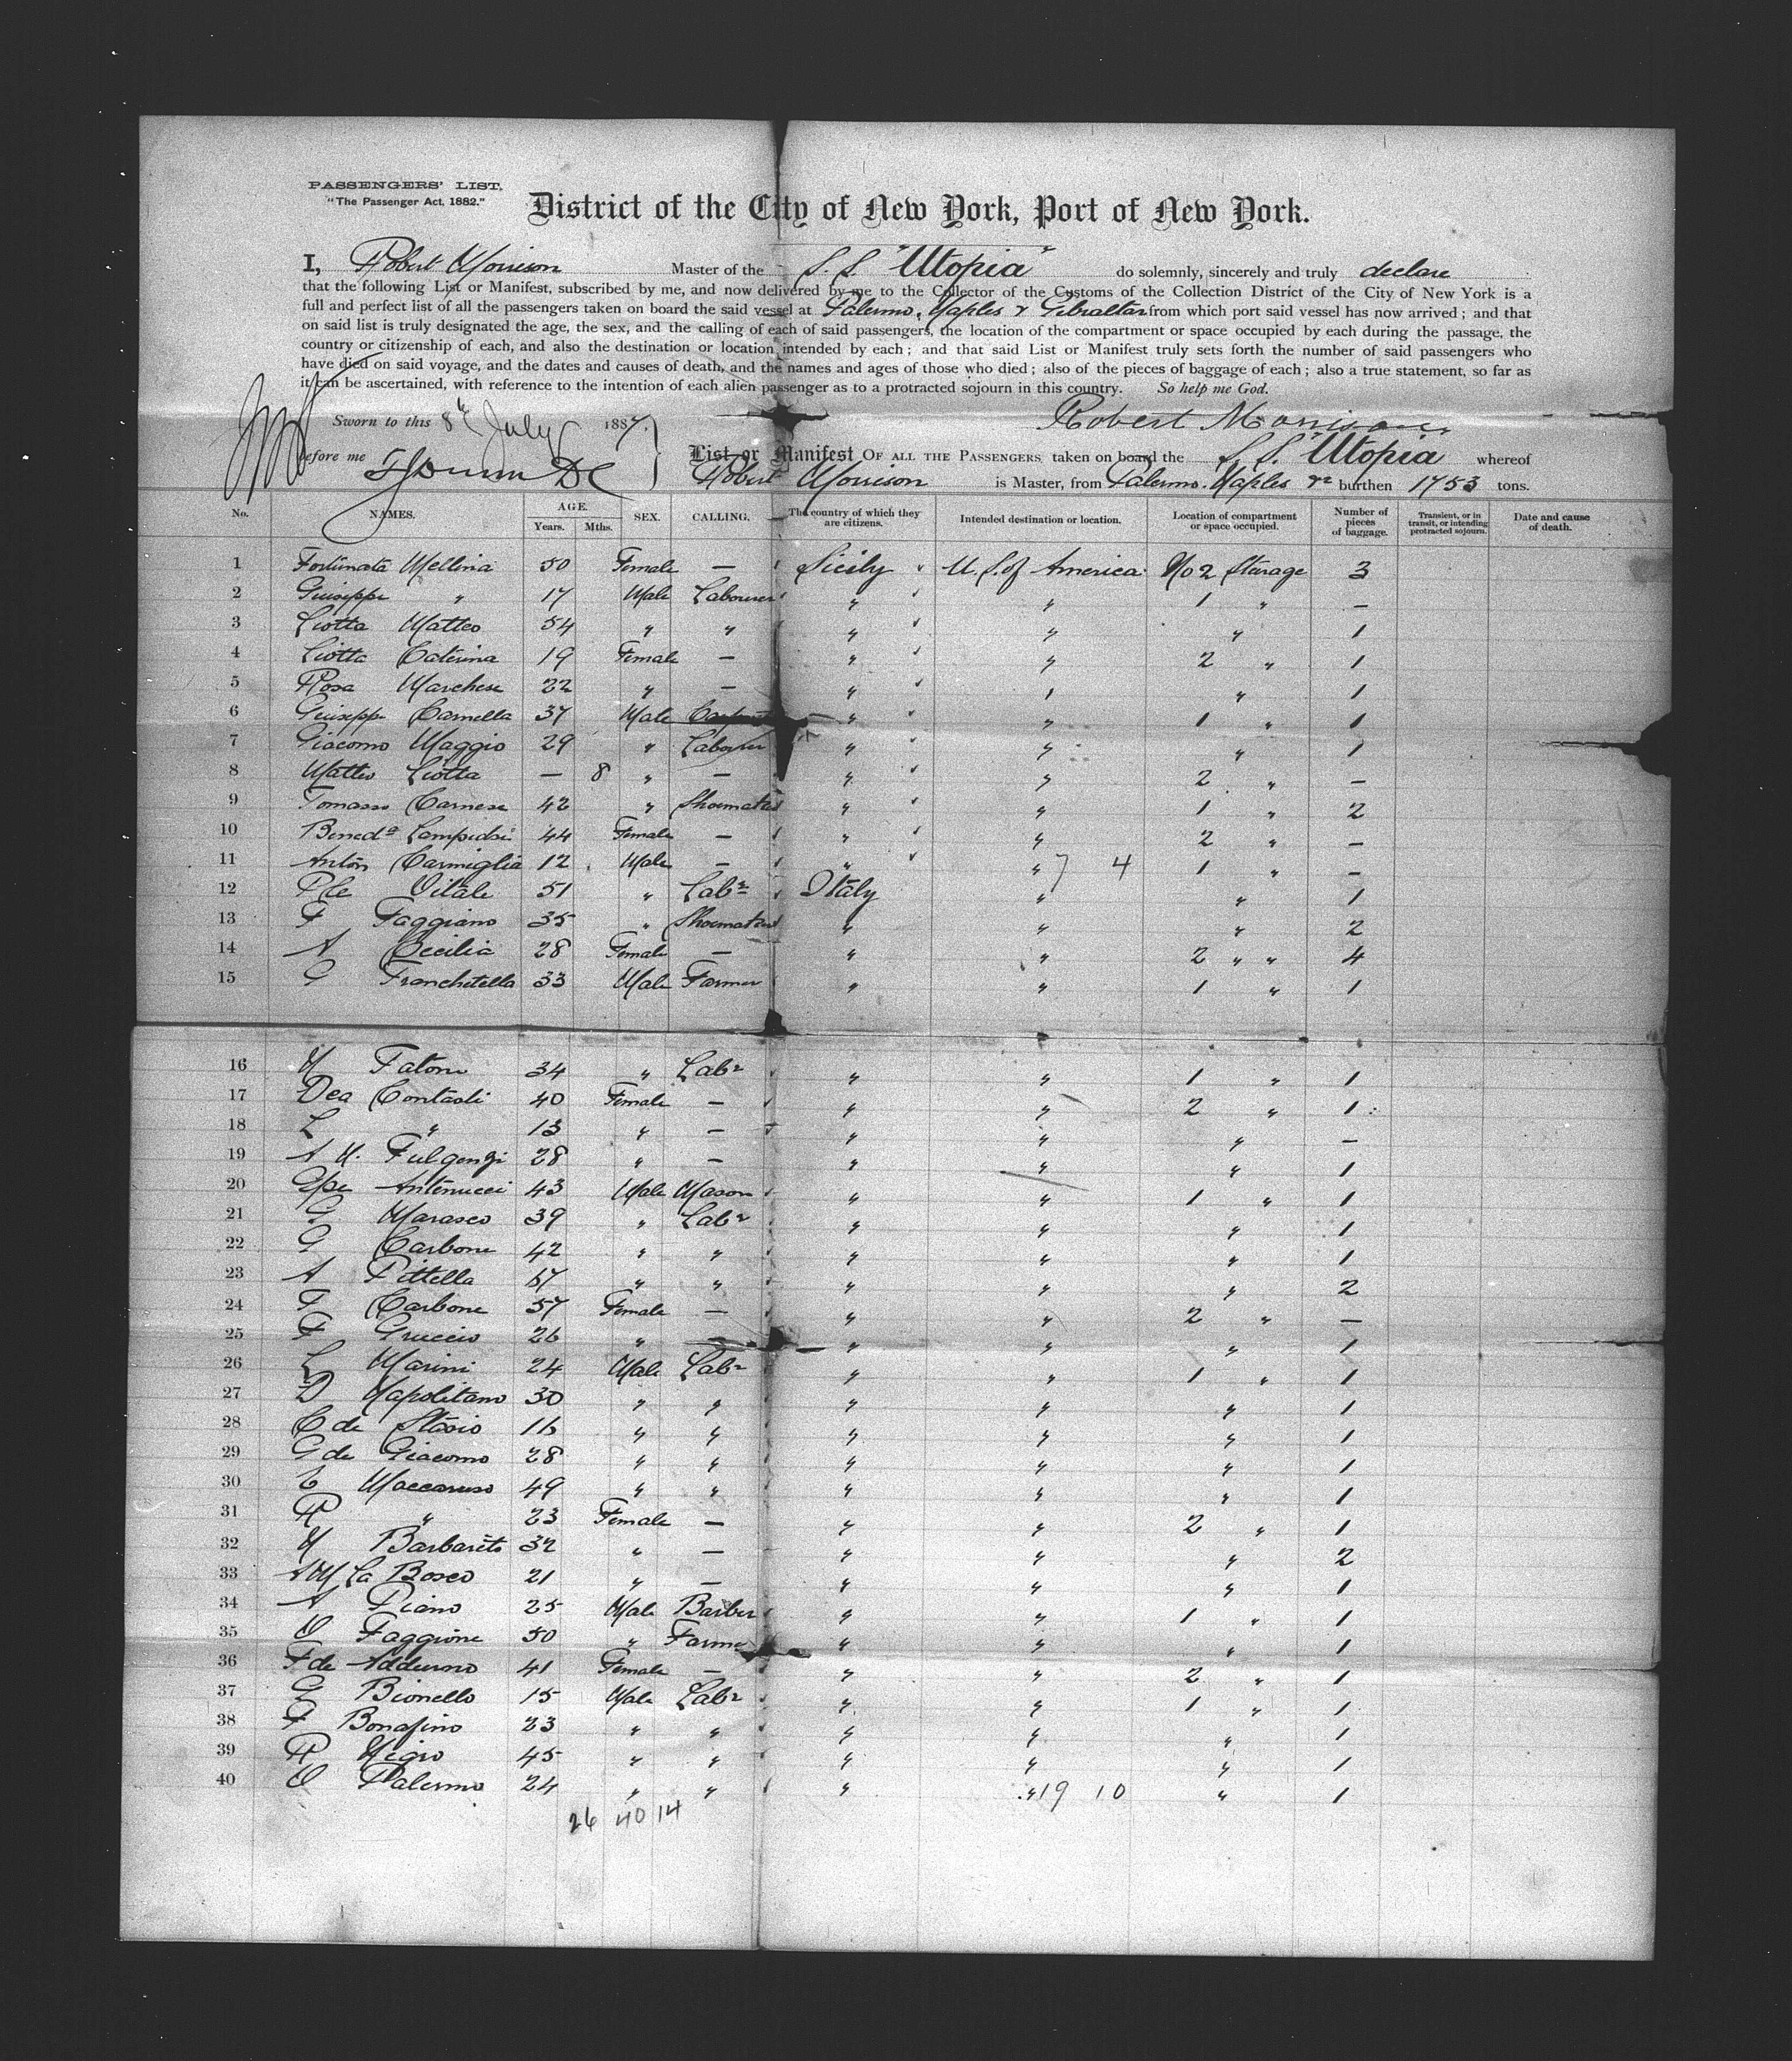 PASSENGERS' LIST.
"The Passenger Act, 1882."
District of the City of New York, Port of New York.
I, Robert Morrison Master of the S.S. "Utopia" do solemnly, sincerely and truly declare
that the following List or Manifest, subscribed by me, and now delivered by me to the Collector of the Customs of the Collection District of the City of New York is a
full and perfect list of all the passengers taken on board the said vessel at Palermo, Naples & Gibraltar from which port said vessel has now arrived; and that
on said list is truly designated the age, the sex, and the calling of each of said passengers, the location of the compartment or space occupied by each during the passage, the
country or citizenship of each, and also the destination or location intended by each; and that said List or Manifest truly sets forth the number of said passengers who
have died on said voyage, and the dates and causes of death, and the names and ages of those who died; also of the pieces of baggage of each; also a true statement, so far as
it can be ascertained, with reference to the intention of each alien passenger as to a protracted sojourn in this country. So help me God.
Sworn to this 8th July 1887. Robert Morrison
before me
List or Manifest OF ALL THE PASSENGERS taken on board the S.S. "Utopia" whereof
Robert Morrison is Master, from Palermo. Naples &c burthen 1753 tons.
No. NAMES. AGE. Years. Mths. SEX. CALLING. The country of which they are citizens. Intended destination or location. Location of compartment or space occupied. Number of pieces of baggage. Transient, or in transit, or intending protracted sojourn. Date and cause of death.
1 Fortunata Mellina 50 Female — Sicily U.S. of America No 2 Sterage 3
2 Giuseppe " 17 Male Labourer " " 1 " —
3 Liotta Matteo 54 " " " " " 1
4 Liotta Caterina 19 Female — " " 2 " 1
5 Rosa Marchese 22 " — " 1 " 1
6 Giuseppe Camella 37 Male " " 1 " 1
7 Giacomo Maggio 29 " Labourer " " " 1
8 Matteo Liotta — 8 " — " " 2 " —
9 Tomasso Carnese 42 " Shoemaker " " 1 " 2
10 Beneda 44 Female — " " 2 " —
11 Anton Carmiglia 12 Male — " " 7 4 1 " —
12 Vitale 51 " Labr Italy " " 1
13 F Faggiano 35 " Shoemaker " " " 2
14 A Cecilia 28 Female — " " 2 " " 4
15 G Franchitella 33 Male Farmer " " 1 " 1
16 M Fatone 34 " Labr " " 1 " 1
17 Dea 40 Female — " " 2 " 1
18 L " 13 " — " " " —
19 A M. Fulgenzi 28 " — " " " 1
20 Gpe Antenucci 43 Male Mason " " 1 " 1
21 G Marasco 39 " Labr " " " 1
22 G Carbone 42 " " " " " 1
23 A Pittella " " " " " 2
24 F Carbone 57 Female — " " 2 " —
25 F Gruccio 26 " — " " " 1
26 L Marini 24 Male Labr " " 1 " 1
27 D Napolitano 30 " " " " " 1
28 C de Stasio 16 " " " " " 1
29 G de Giacomo 28 " " " " " 1
30 Maccaruso 49 " " " " " 1
31 R " 23 Female — " " 2 " 1
32 M Barbarito 32 " — " " " 2
33 A M La Bosco 21 " — " " " 1
34 A Piano 25 Male Barber " " 1 " 1
35 Faggione 50 " Farmer " " " 1
36 F de Addurno 41 Female — " " 2 " 1
37 G Bionello 15 Male Labr " " 1 " 1
38 F Bonafino 23 " " " " " 1
39 R Nigro 45 " " " " " 1
40 Palermo 24 " " " " 19 10 " 1
26 40 14